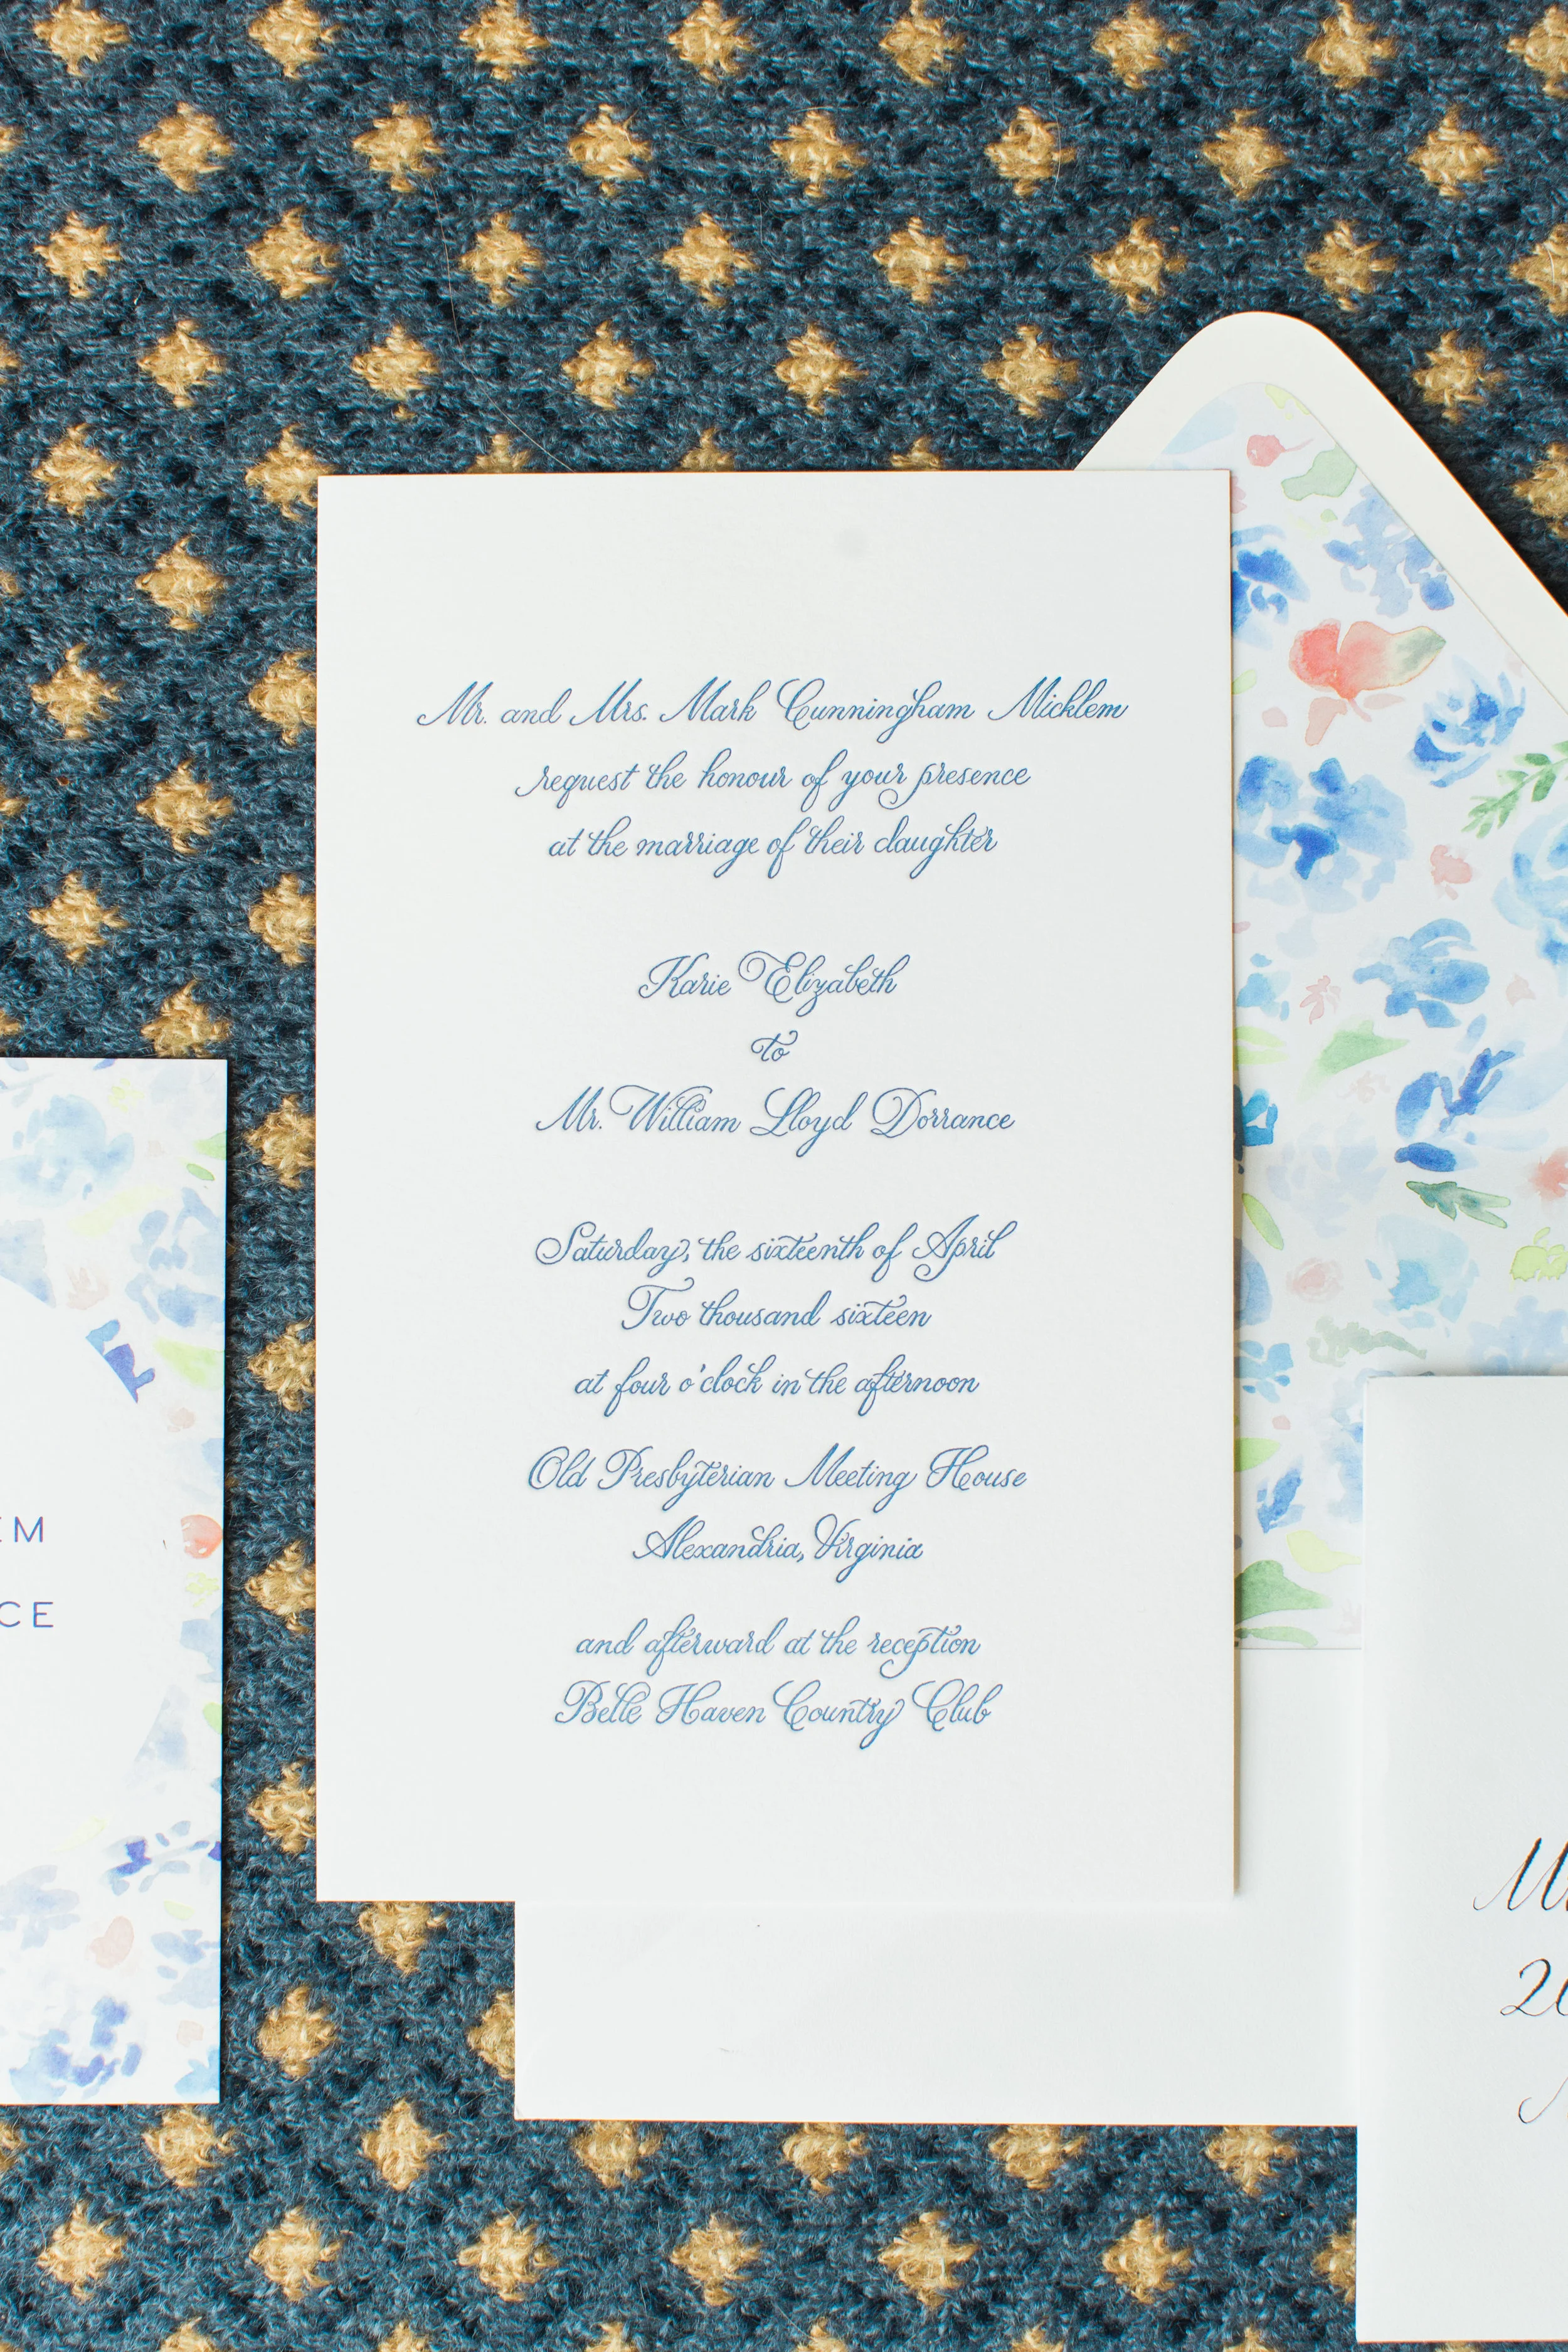 Mr. and Mrs. Mark Cunningham Micklem
request the honour of your presence
at the marriage of their daughter
Karie Elizabeth
to
Mr. William Lloyd Dorrance
Saturday, the sixteenth of April
Two thousand sixteen
at four o'clock in the afternoon
Old Presbyterian Meeting House
Alexandria, Virginia
and afterward at the reception
Belle Haven Country Club
EM
CE